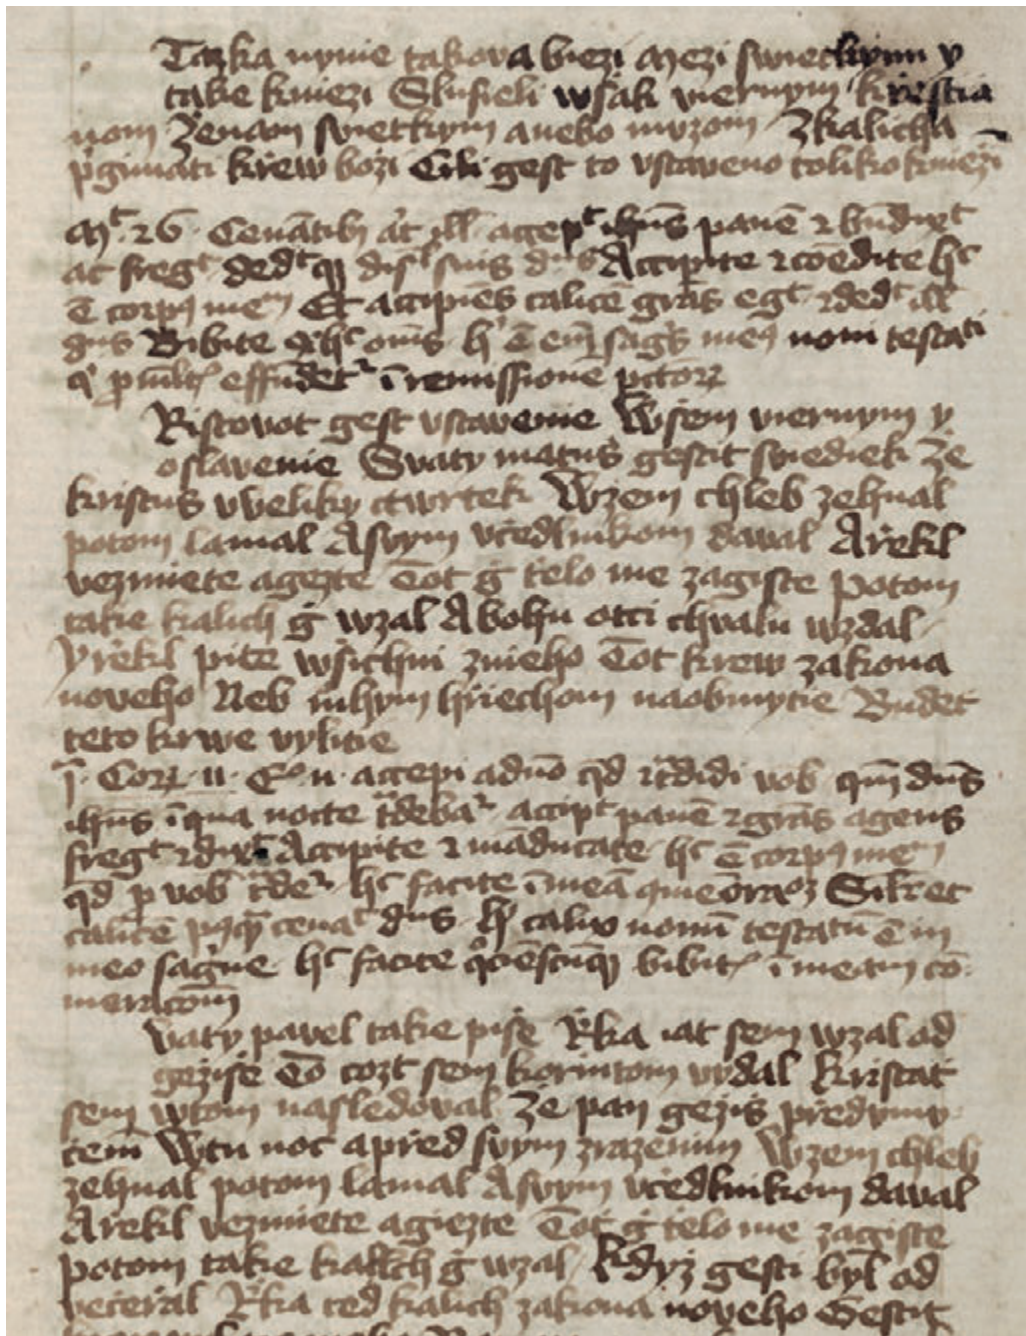 Tazka nynie takova biezi Mezi swietskymi y
take kniezi Slusieli wsak viernym krestia
nom Zenam svietkym anebo muzom Zkalicha
prgimati krew bozi Cili gest to vstaveno toliko kniezi
Mt 26 Cenatib at ill accept ihus pane et bndixt
at fregt dedtqz dist suis dns Accipite et coedite hc
e corpus meum Et accipies calice gras egt et dedt ill
dns Bibite ex hc oms hc e em sags meus noui testati
q p mult effudet i remissione pctorum
Ristovot gest vstavenie Wsem viernym y
oslavenie Svaty matus gestit swiediek Ze
kristus vveliky ctwrtek Wzem chleb zehnal
potom lamal Asvym vcedlnikom daval Arekl
vezmiete agezte Tot g telo me zagiste Potom
take kalich g wzal Abohu otci chvalu wzdal
Yrekl pite wsichni znieho Tot krew zakona
noveho Neb mhym hriechom naobmytie Budet
teto krwe vylitie
Cor 11 accepi a dno qd et tdidi vob qm dns
ihus i qua nocte tdebat accipt pane et gras agens
fregt et dixt Accipite et maducate hc e corpus meum
qd p vob tdet hc facite i mea Silr et
calice cenat dns hc calix nouu testatu e in
meo sague hc facite bibit i meam co
meracom
vaty pavel take pise Rka iat sem wzal od
gezise To cozt sem korintom vydal Kristat
sem wtom nasledoval Ze pan gezis predvmu
cem Wtu noc apred svym zrazenim Wzem chleb
zehnal potom lamal Asvym vcedlnikom daval
Arekl vezmiete agiezte Tot g telo me zagiste
potom take kalich g wzal Kdyz gesti byl od
veceral Rka ted kalich zakona noveho Gestit